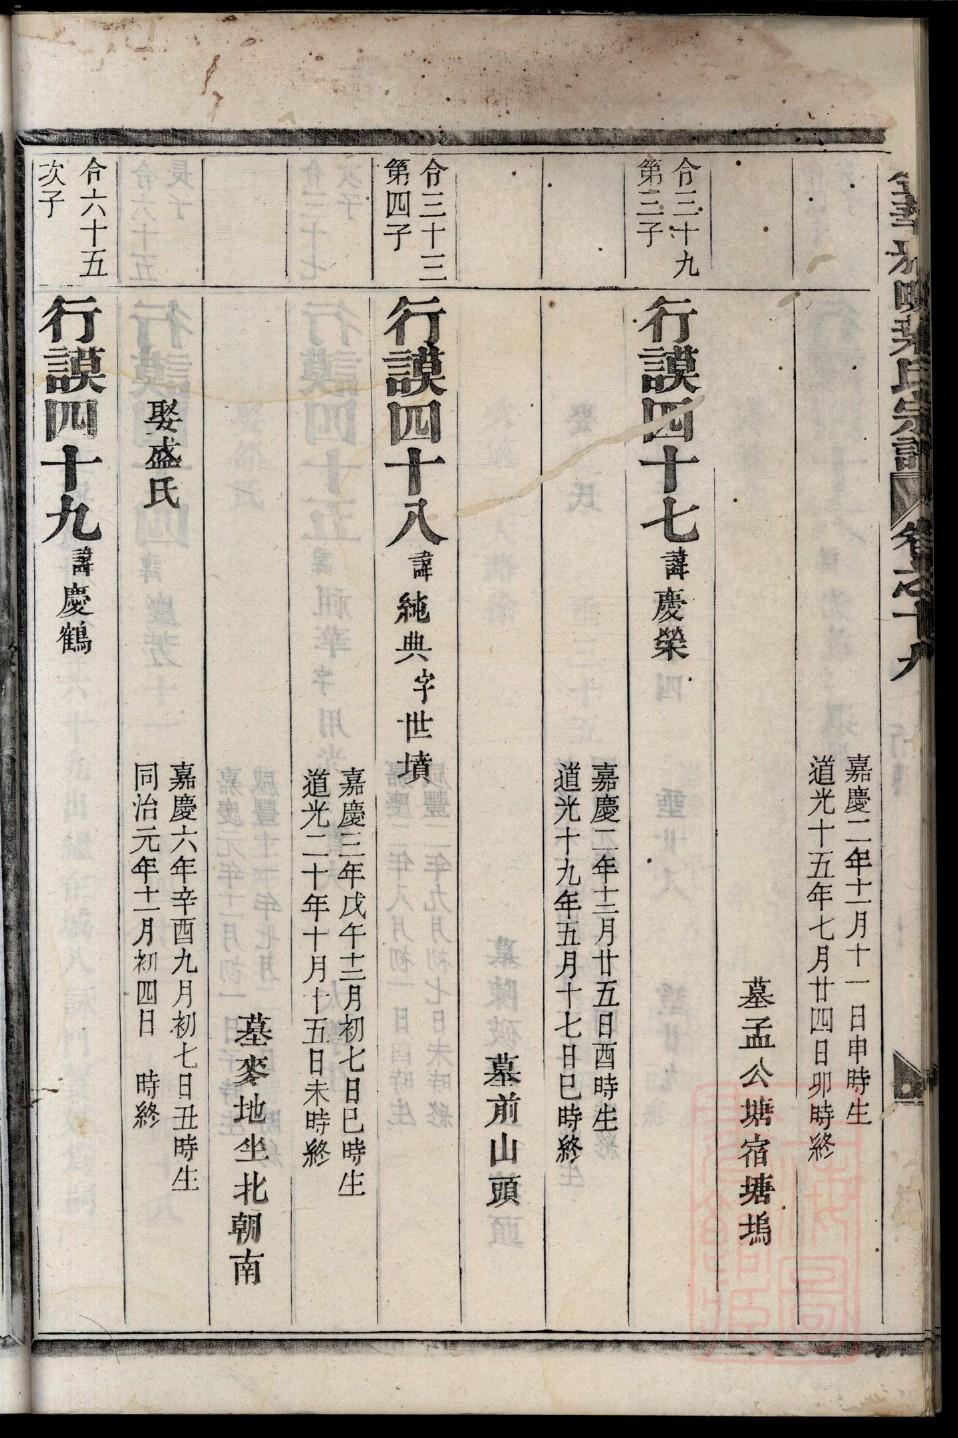 嘉慶二年十一月十一日申時生
道光十五年七月廿四日卯時終
墓孟公塘宿塘塢
佮三十九
第三子
行謨四十七諱慶榮
嘉慶二年十二月廿五日酉時生
道光十九年五月十七日巳時終
墓前山頭
佮三十三
第四子
行謨四十八諱純典字世墳
嘉慶三年戊午十二月初七日巳時生
道光二十年十月十五日未時終
墓麥地坐北朝南
娶盛氏
嘉慶六年辛酉九月初七日丑時生
同治元年十一月初四日 時終
佮六十五
次子
行謨四十九諱慶鶴
葉氏宗譜 卷之十九